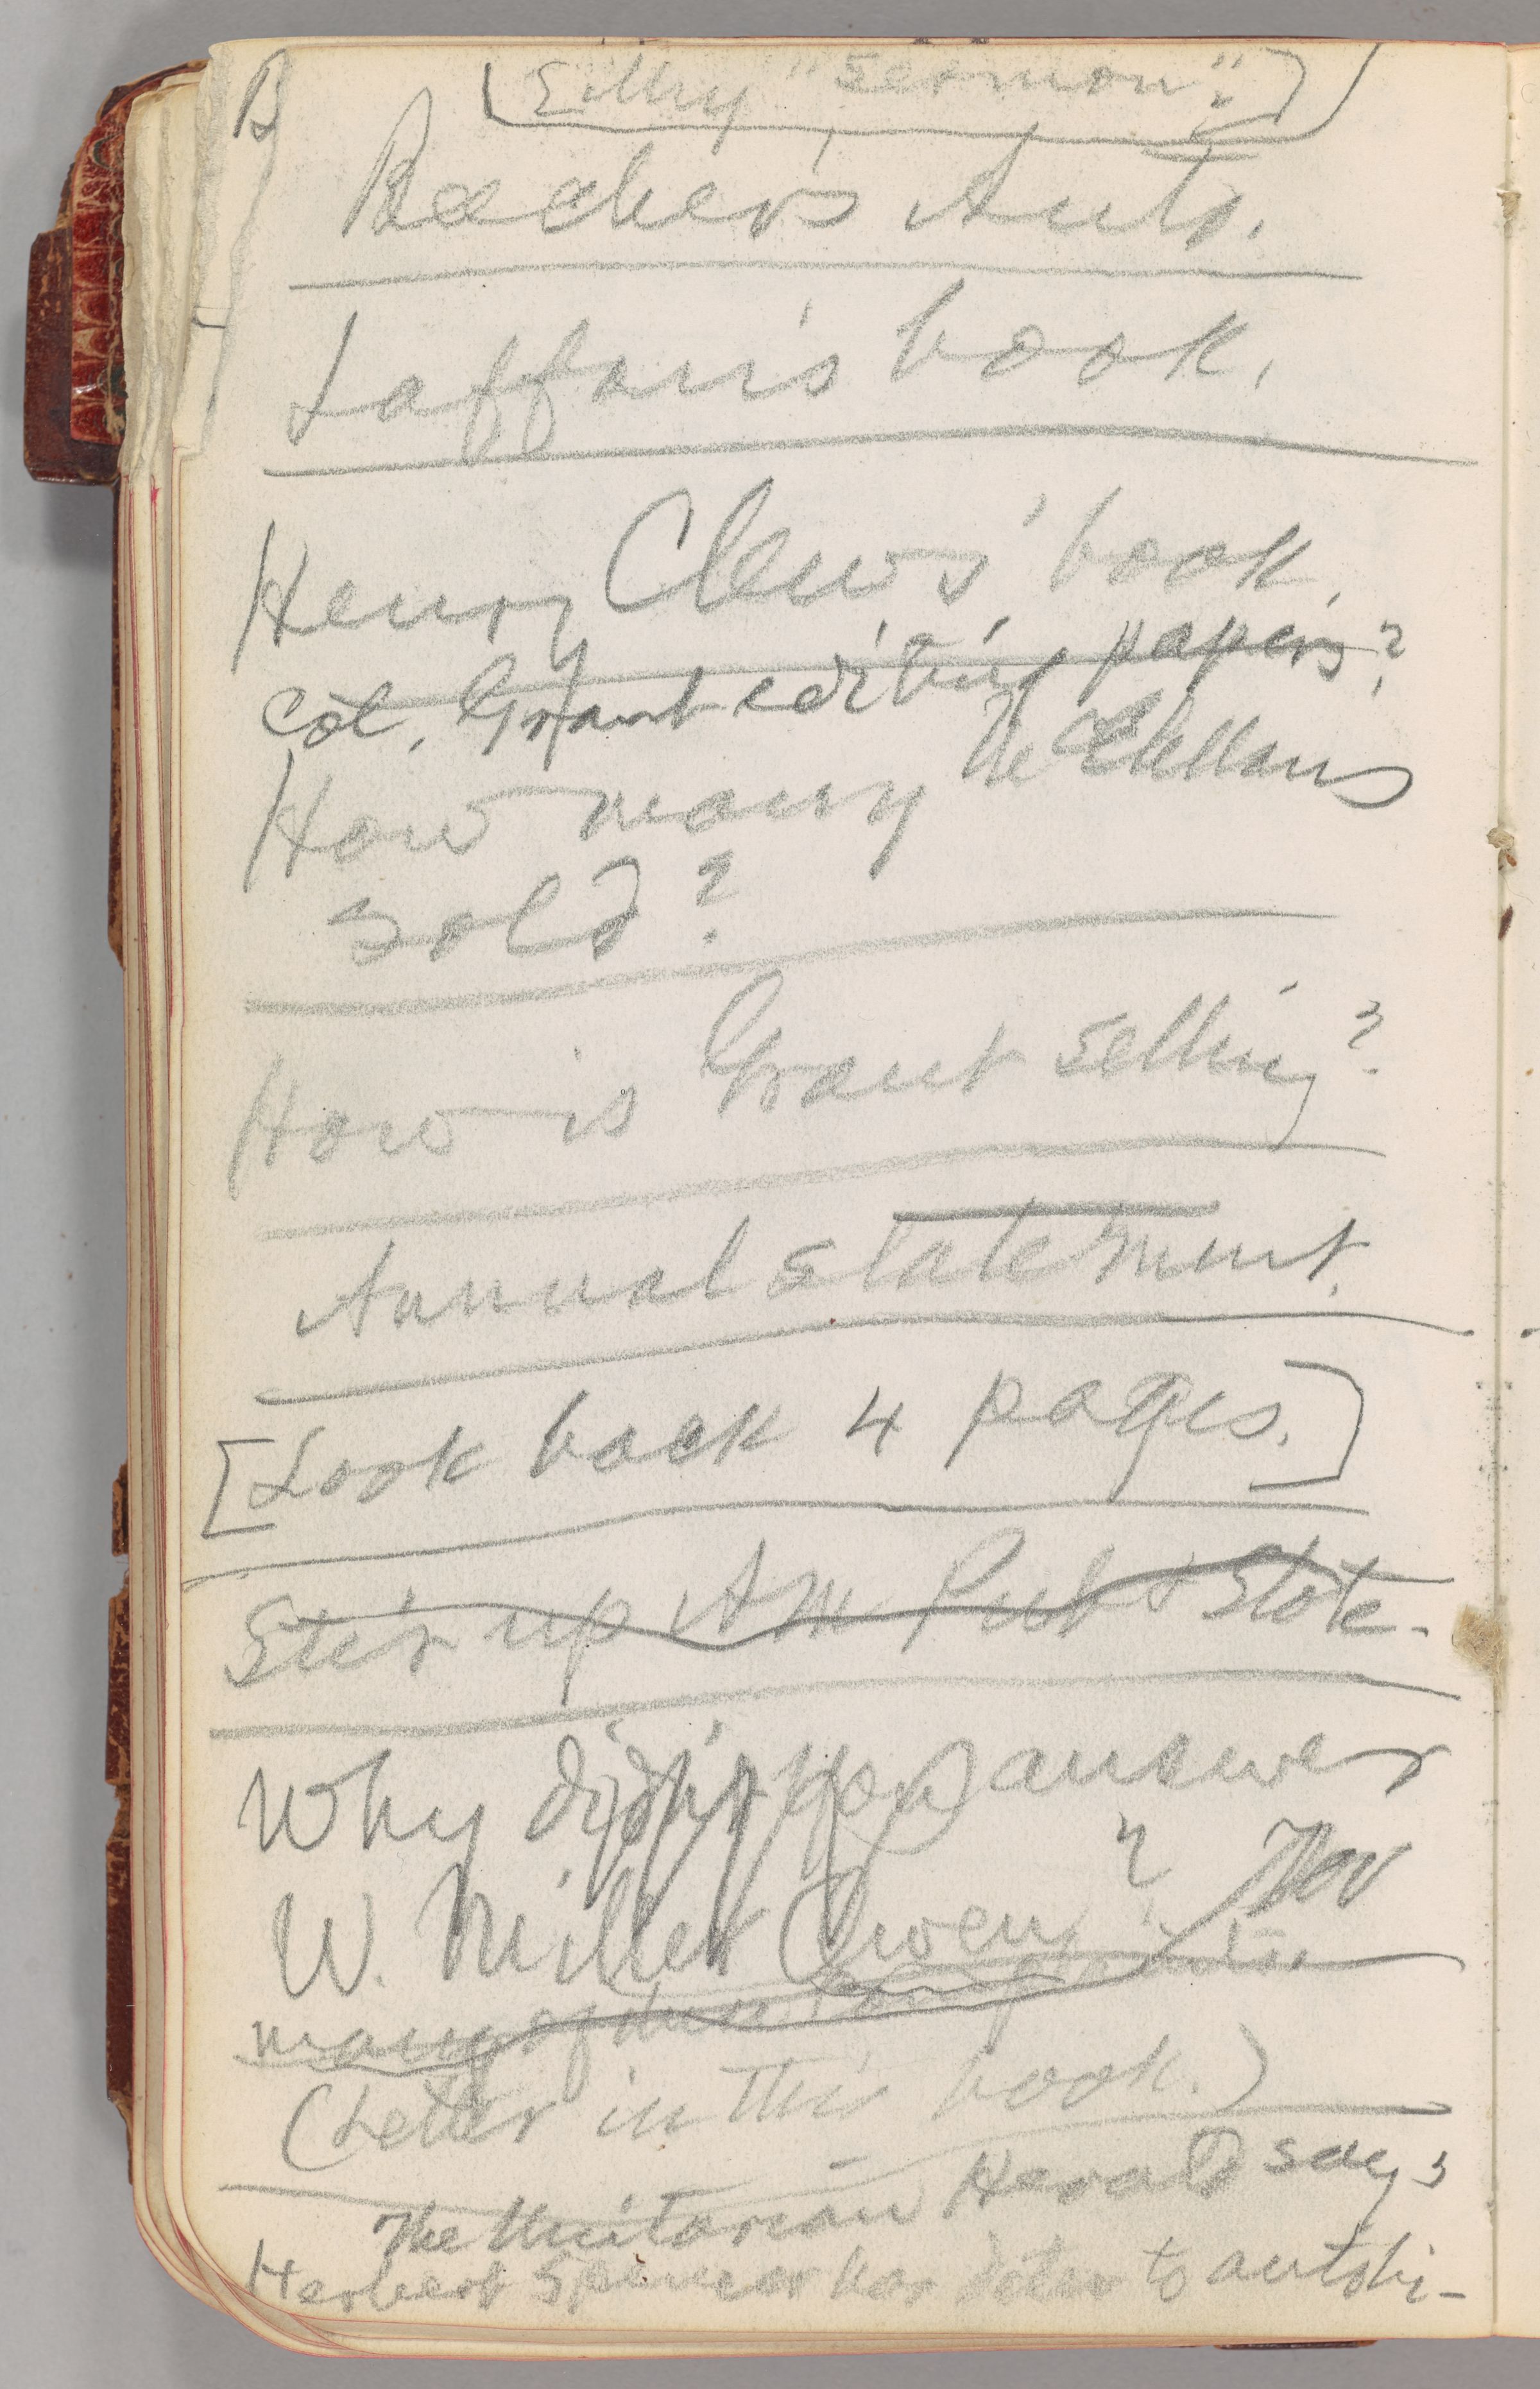 B
"Sermon"?
Beecher's Auto.
Laffan's book.
Henry Clews' book.
Col. Grant editing papers?
How many McClellans
sold?
How is Grant selling?
Annual statement.
[Look back 4 pages.]
Stir up Am Pub & Slote.
Why didn't you answer
W. Miller Owen?
many of these
(Letter in this book.)
The Unitarian Herald says
Herbert Spencer has taken to autobi-